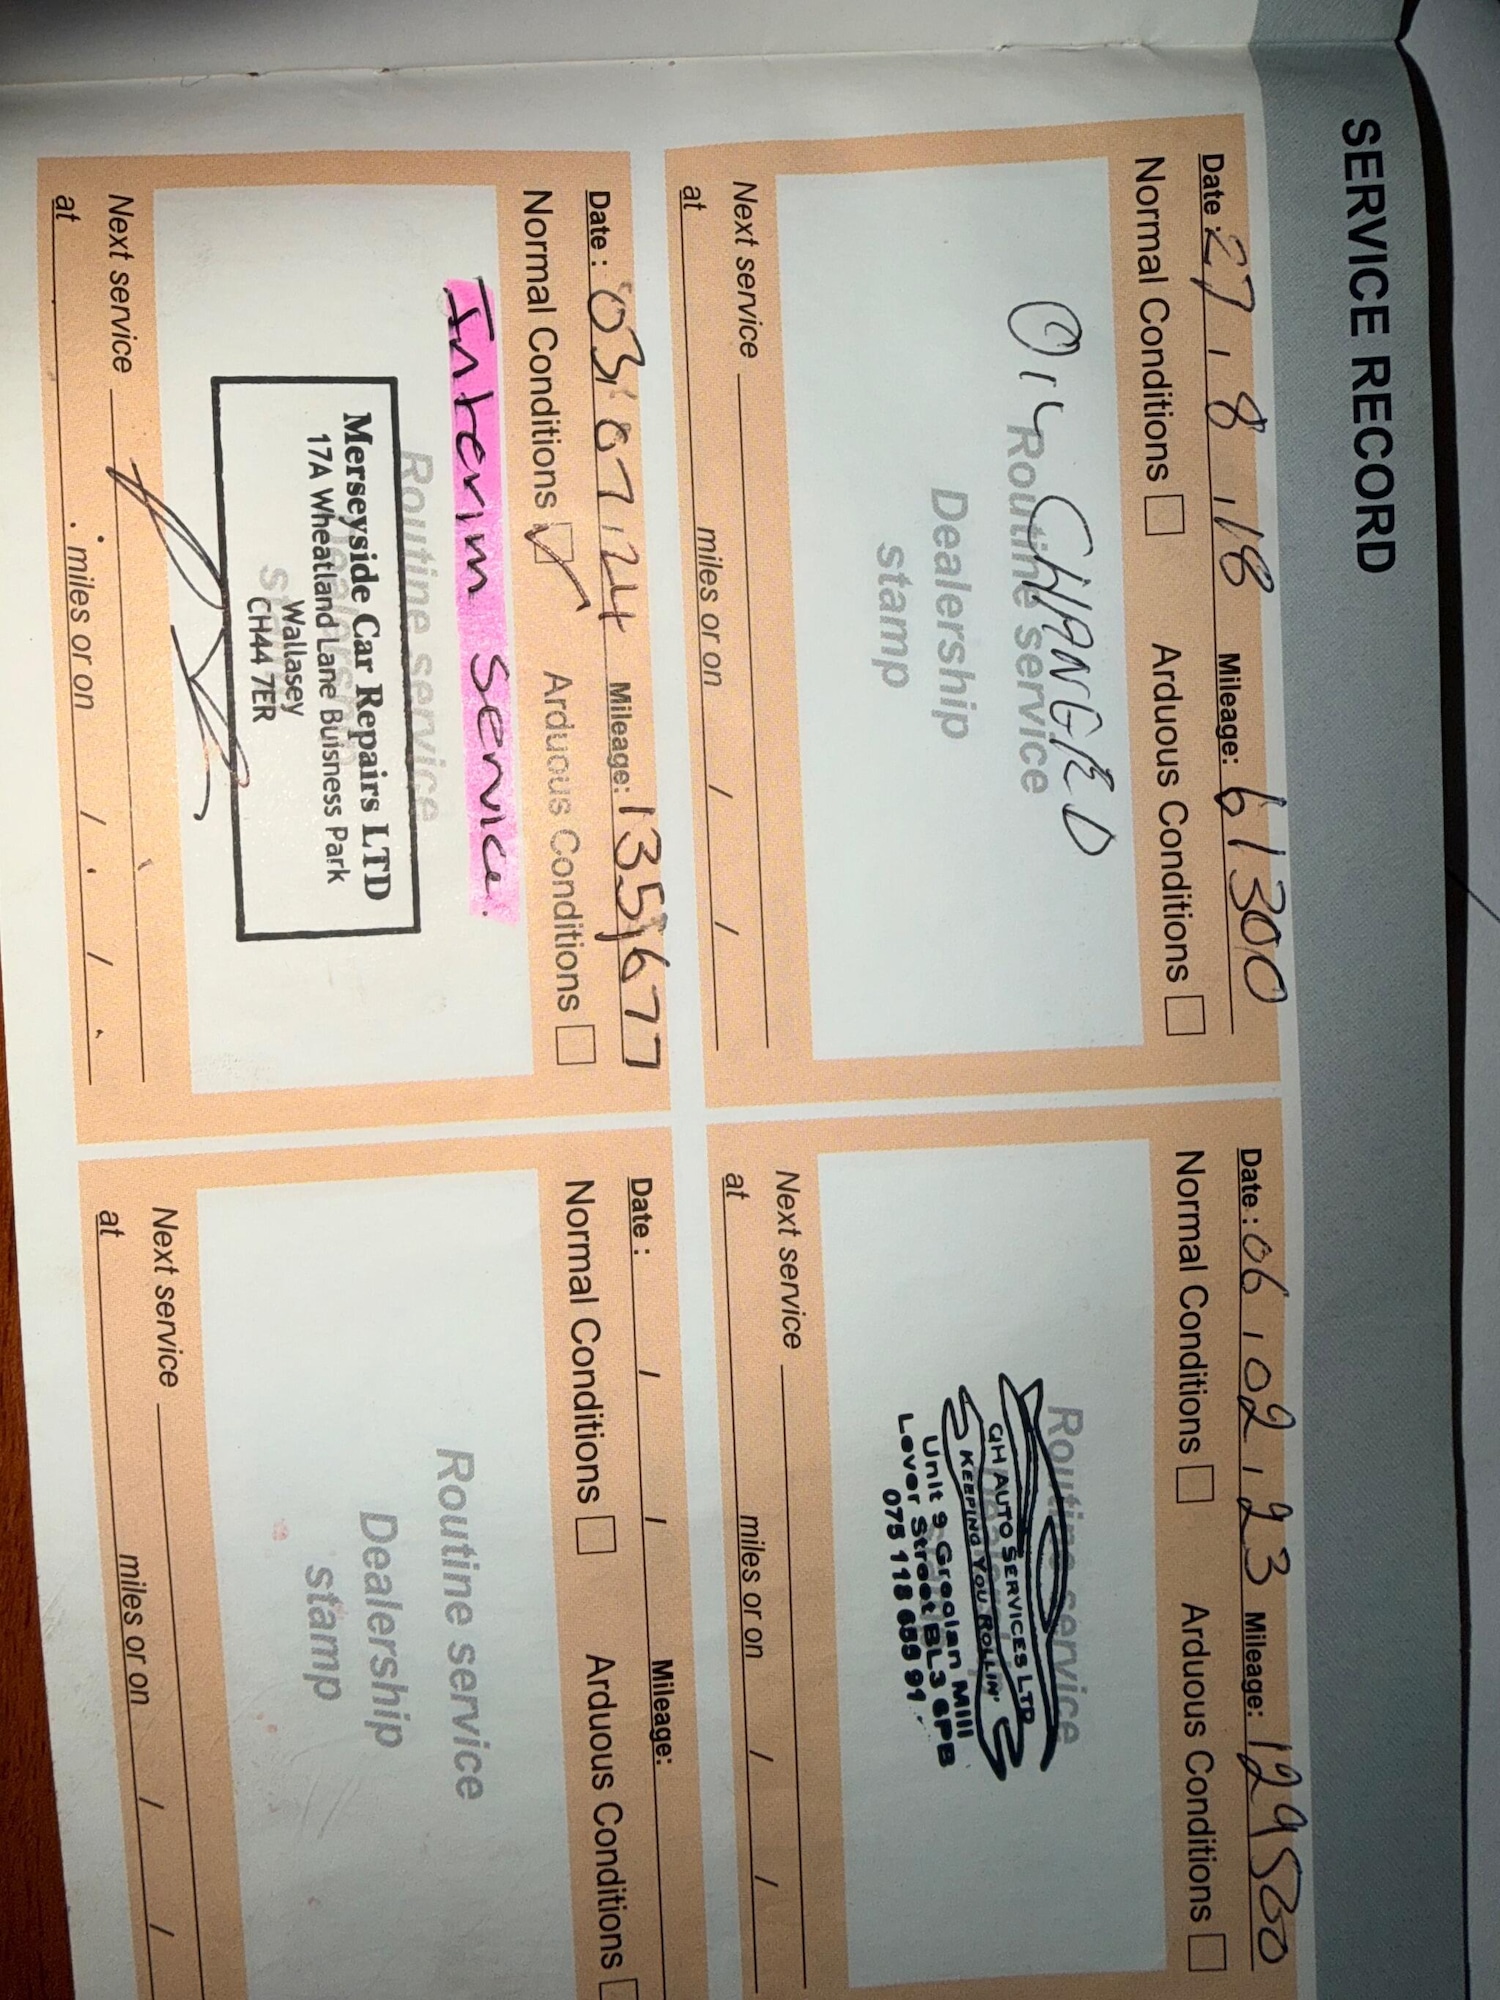 SERVICE RECORD
Date : 27 / 8 / 18 Mileage: 61300
Normal Conditions Arduous Conditions
OIL CHANGED
Routine service
Dealership
stamp
Next service
at miles or on / /
Date : 06 / 02 / 23 Mileage: 129500
Normal Conditions Arduous Conditions
Routine service
GH AUTO SERVICES LTD
KEEPING YOU ROLLIN'
Unit 9 Grecian Mill
Lever Street BL3 6PB
075 118 655 91
Next service
at miles or on / /
Date : 03 / 07 / 24 Mileage: 135,677
Normal Conditions ✓ Arduous Conditions
Interim Service.
Routine service
Merseyside Car Repairs LTD
17A Wheatland Lane Buisness Park
Wallasey
CH44 7ER
Next service
at miles or on / /
Date : / / Mileage:
Normal Conditions Arduous Conditions
Routine service
Dealership
stamp
Next service
at miles or on / /